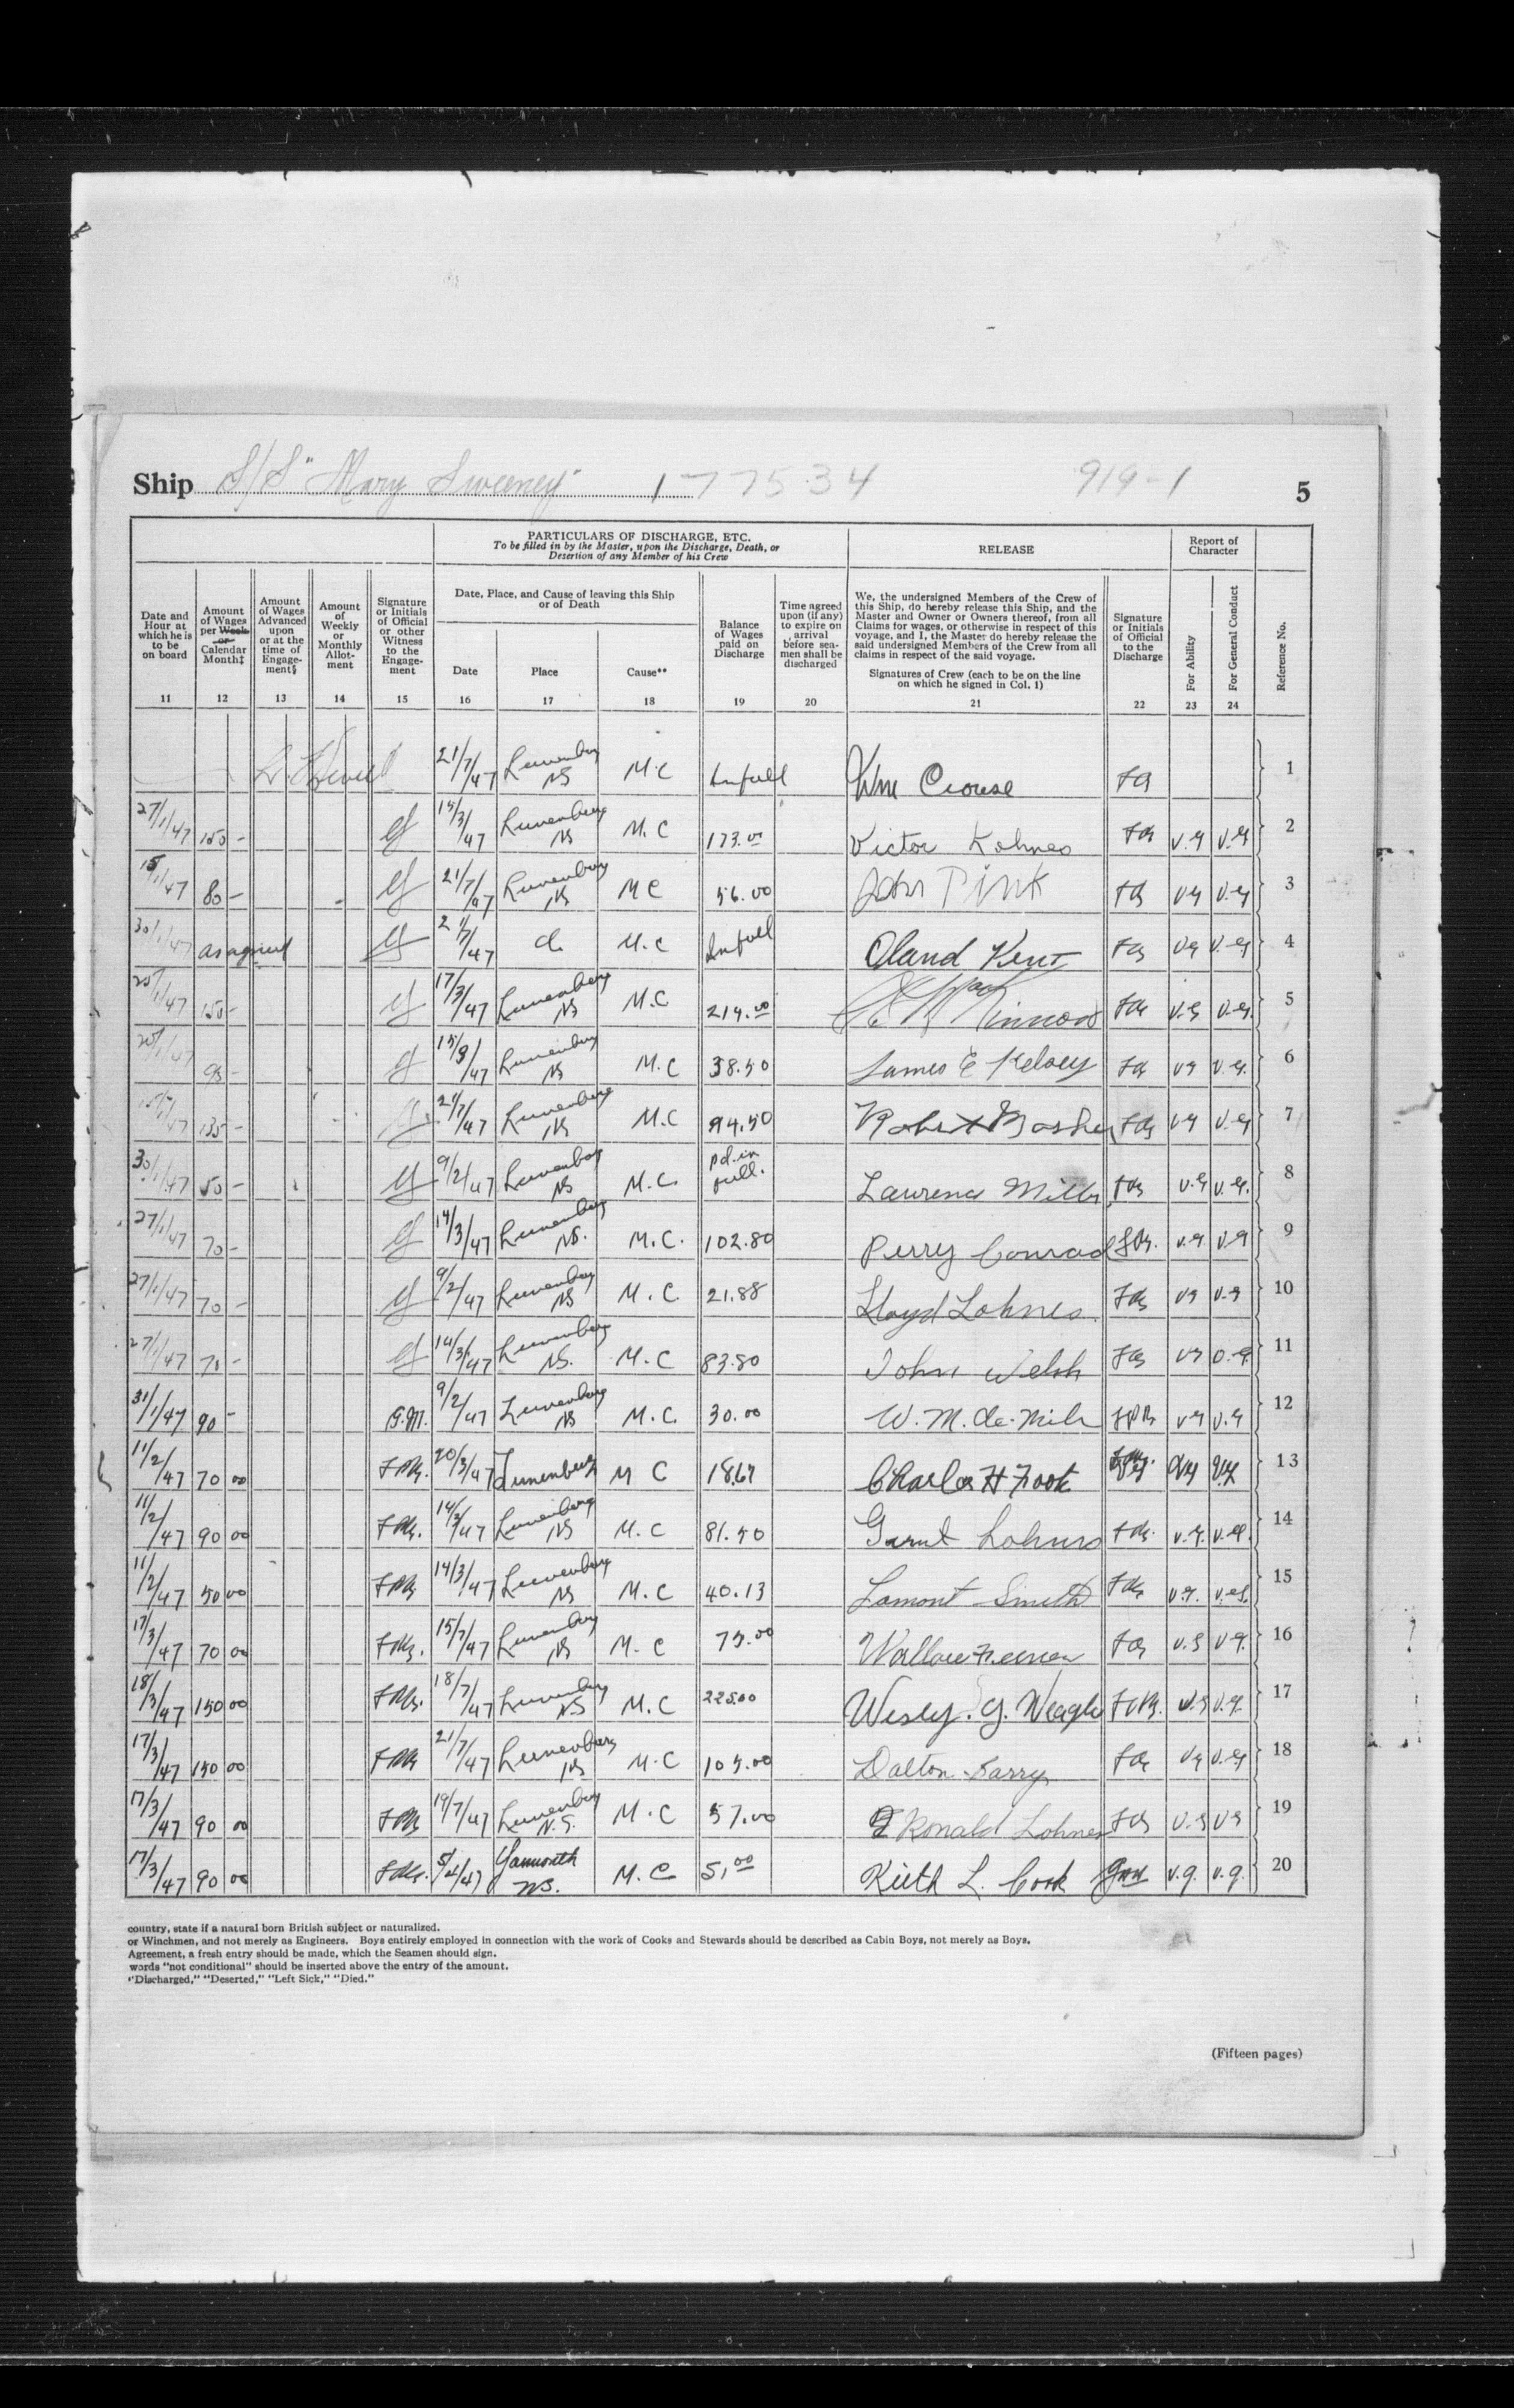 Ship S/S "Mary Sweeney" 177534 919-1 5
PARTICULARS OF DISCHARGE, ETC.
To be filled in by the Master, upon the Discharge, Death, or
Desertion of any Member of his Crew
RELEASE
Report of
Character
Date and
Hour at
which he is
to be
on board
Amount
of Wages
per Week
or
Calendar
Month‡
Amount
of Wages
Advanced
upon
or at the
time of
Engage-
ment§
Amount
of
Weekly
or
Monthly
Allot-
ment
Signature
or Initials
of Official
or other
Witness
to the
Engage-
ment
Date, Place, and Cause of leaving this Ship
or of Death
Date
Place
Cause**
Balance
of Wages
paid on
Discharge
Time agreed
upon (if any)
to expire on
arrival
before sea-
men shall be
discharged
We, the undersigned Members of the Crew of
this Ship, do hereby release this Ship, and the
Master and Owner or Owners thereof, from all
Claims for wages, or otherwise in respect of this
voyage, and I, the Master do hereby release the
said undersigned Members of the Crew from all
claims in respect of the said voyage.
Signatures of Crew (each to be on the line
on which he signed in Col. 1)
Signature
or Initials
of Official
to the
Discharge
For Ability
For General Conduct
Reference No.
11 12 13 14 15 16 17 18 19 20 21 22 23 24
21/7/47 Lunenburg NS M.C In full Wm Crouse 1
27/1/47 150 - 15/3/47 Lunenburg NS M.C 173.00 Victor Lohnes v.g v.g 2
15/1/47 80 - 21/7/47 Lunenburg NS M C 56.00 John Pink v.g v.g 3
30/1/47 as agreed 21/7/47 M.C In full Oland Kent v.g v.g 4
25/1/47 150 - 17/3/47 Lunenburg NS M.C 214.00 MacKinnon v.g v.g. 5
25/1/47 95 - 15/3/47 Lunenburg NS M.C 38.50 James E Kelsey v.g v.g. 6
135 - 21/7/47 Lunenburg NS M.C 94.50 Robert v.g v.g 7
30/1/47 50 - 9/2/47 Lunenburg NS M.C. pd. in full. Lawrence Mills v.g v.g. 8
27/1/47 70 - 14/3/47 Lunenburg NS. M.C. 102.80 Perry Conrad v.g v.g 9
27/1/47 70 - 9/2/47 Lunenburg NS M.C. 21.88 Lloyd Lohnes v.g v.g 10
27/1/47 70 - 14/3/47 Lunenburg NS. M.C 83.80 John Welsh v.g v.g. 11
31/1/47 90 - G.M. 9/2/47 Lunenburg NS M.C. 30.00 W. M. de Mile v.g v.g 12
11/2/47 70 00 20/3/47 Lunenburg M C 18.67 Charles H Zook v.g v.g 13
11/2/47 90 00 14/3/47 Lunenburg NS M.C 81.50 Garnet Lohnes v.g. v.g. 14
11/2/47 50 00 14/3/47 Lunenburg NS M.C 40.13 Lamont Smith v.g. v.g. 15
17/3/47 70 00 15/7/47 Lunenburg NS M.C 75.00 Wallace v.g v.g. 16
18/3/47 150 00 18/7/47 Lunenburg N.S M.C 225.00 Wesley. G. Neagle v.g v.g. 17
17/3/47 150 00 21/7/47 Lunenburg NS M.C 105.00 Dalton Sarry v.g v.g 18
17/3/47 90 00 19/7/47 Lunenburg N.S. M.C 57.00 Ronald Lohnes v.g v.g 19
17/3/47 90 00 5/4/47 Yarmouth NS. M.C 51.00 Keith L. Cook v.g. v.g. 20
country, state if a natural born British subject or naturalized.
or Winchmen, and not merely as Engineers. Boys entirely employed in connection with the work of Cooks and Stewards should be described as Cabin Boys, not merely as Boys.
Agreement, a fresh entry should be made, which the Seamen should sign.
words "not conditional" should be inserted above the entry of the amount.
"Discharged," "Deserted," "Left Sick," "Died."
(Fifteen pages)